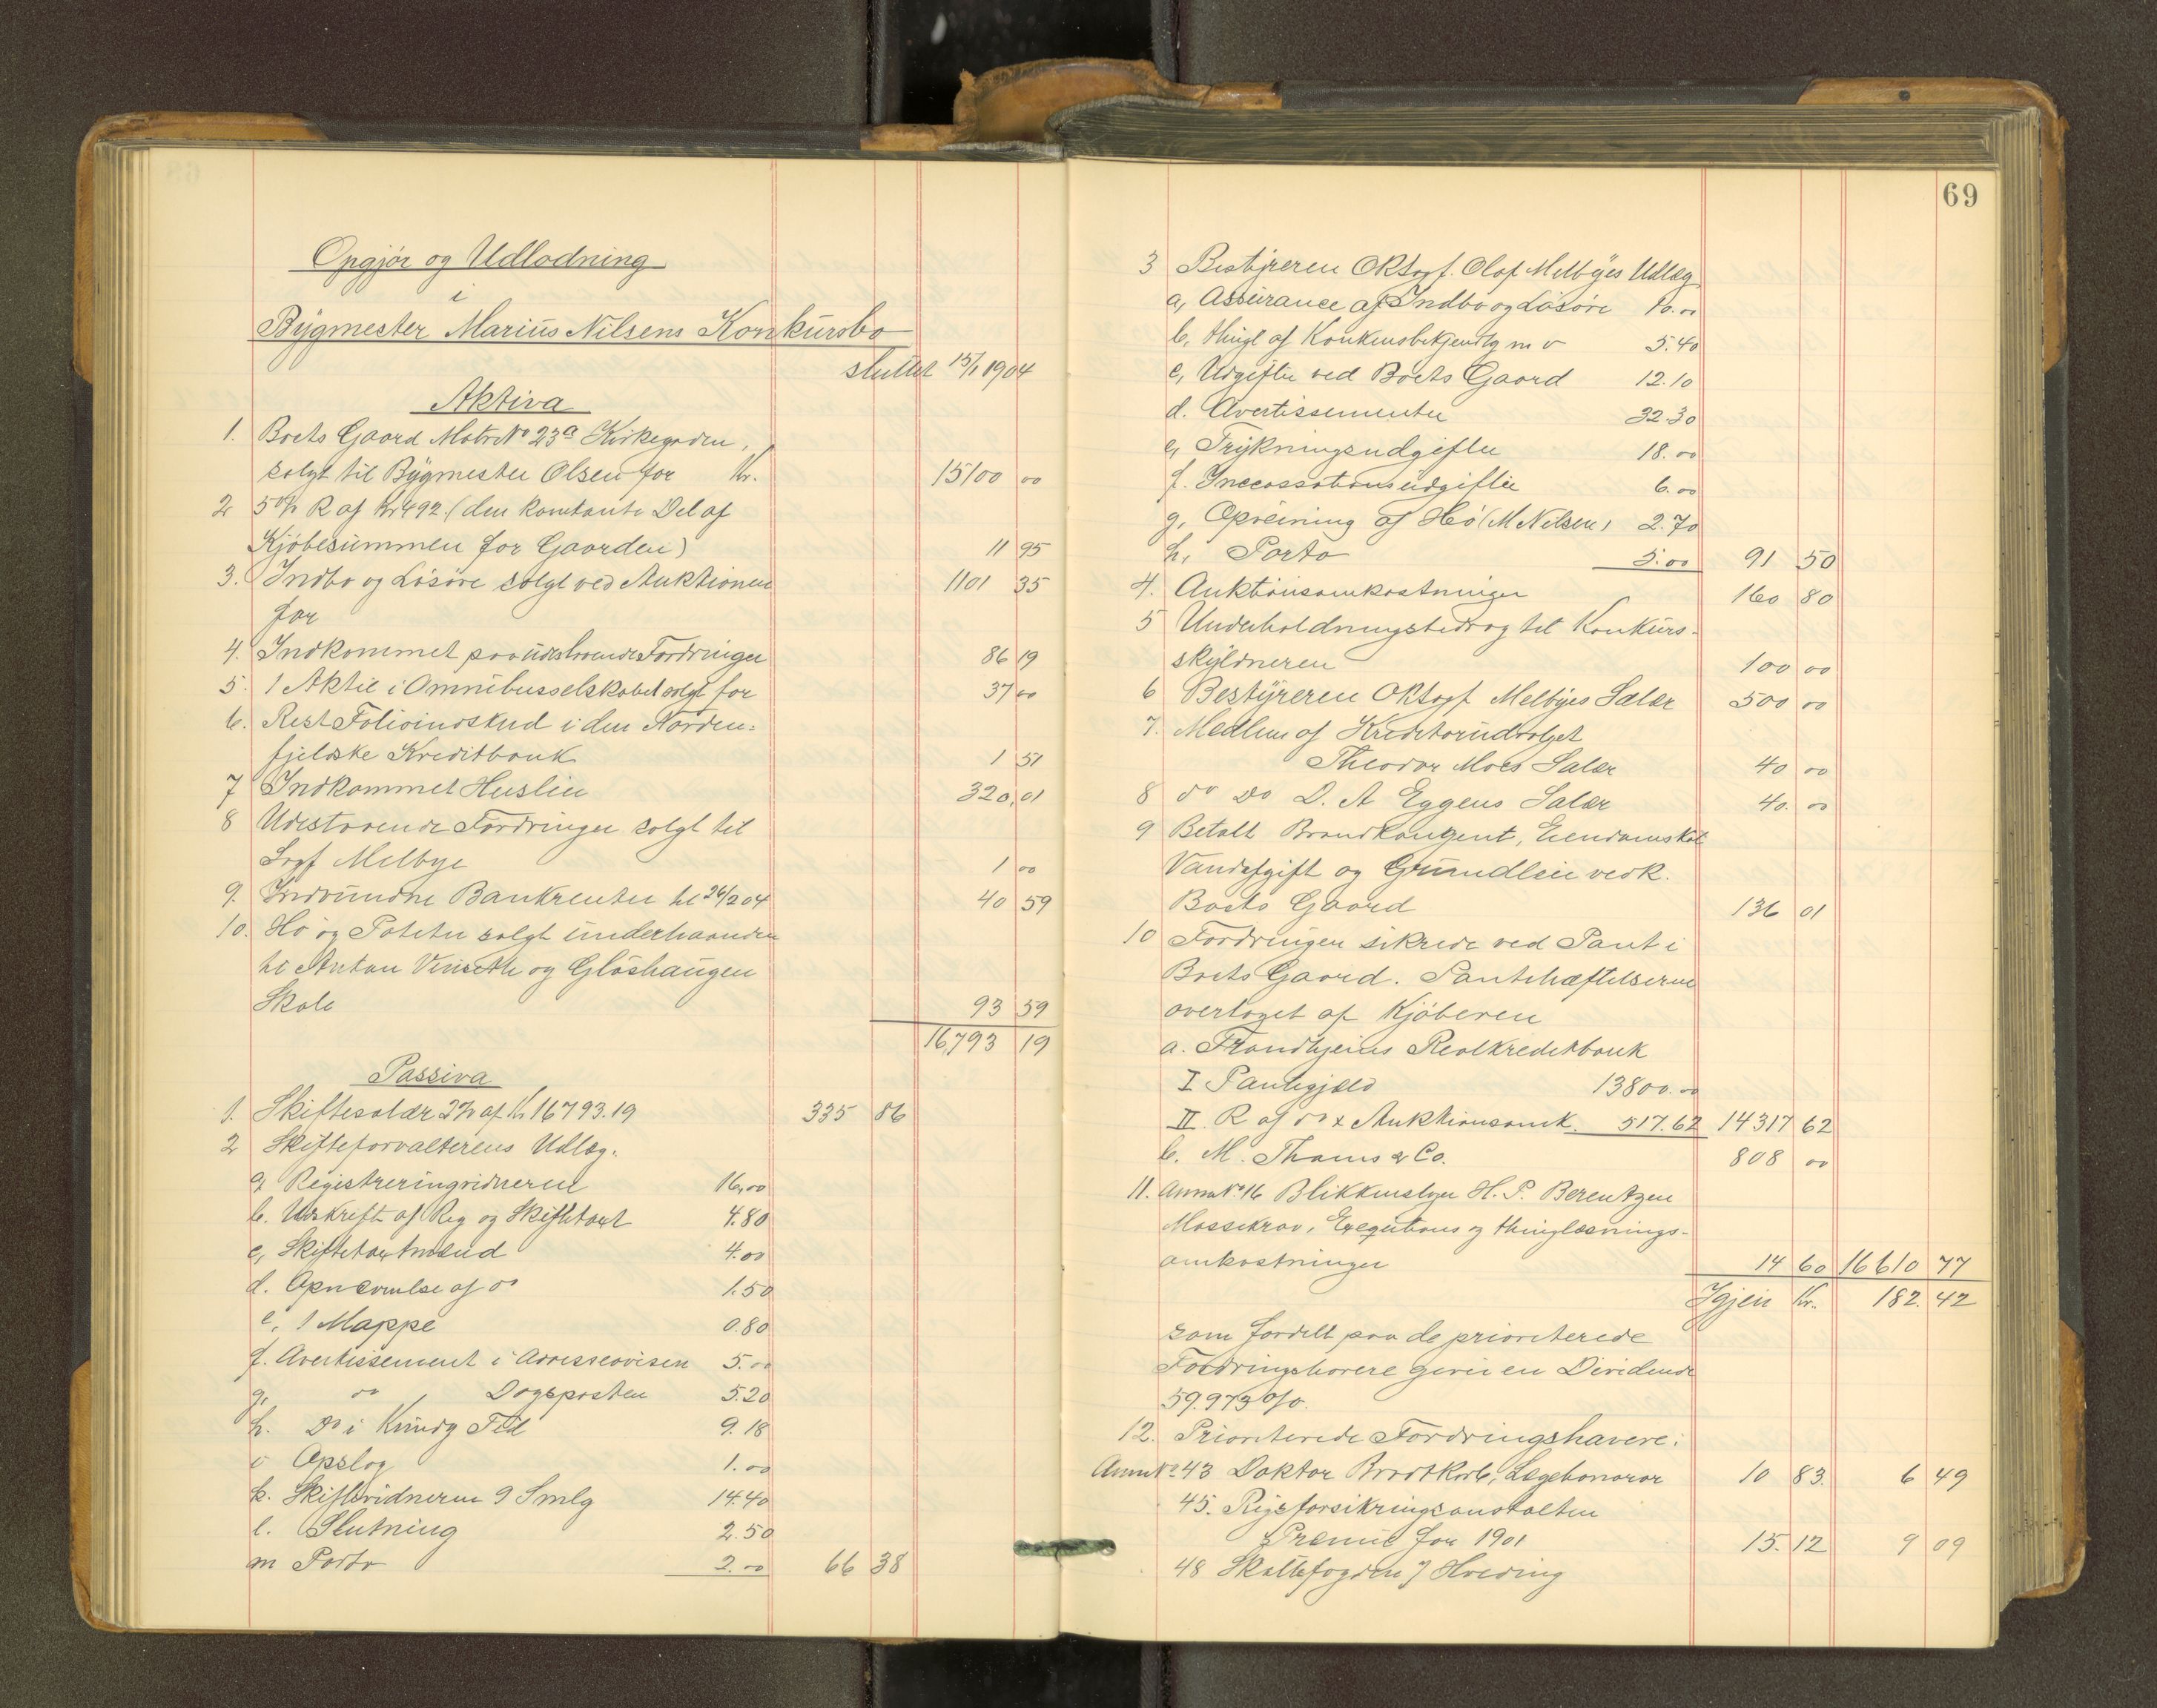 Opgjør og Udlodning
i
Bygmester Marius Nilsens Konkursbo
sluttet 15/1 1904
Aktiva
1. Boets Gaard Matr No 23a Kirkegaden,
solgt til Bygmester Olsen for Kr. 15100 00
2 5% R af Kr 492. (den kontante Del af
Kjøbesummen for Gaarden) 11 95
3. Indbo og Løsøre solgt ved Auktionen 1101 35
for
4. Indkommet paa udestaaende Fordringer 86 19
5. 1 Aktie i Omnibusselskabet solgt for 37 00
6. Rest Folioindskud i den Norden-
fjeldske Kreditbank 1 51
7 Indkommet Husleie 320,01
8 Udestaaende Fordringer solgt til
Sagf Melbye 1 00
9. Indvundne Bankrenter til 26/2 04 40 59
10. Hø og Poteter solgt underhaanden
til Anton Vinseth og Gløshaugen
Skole 93 59
16,793 19
Passiva
1. Skiftesalær 2% af Kr 16793.19 335 86
2 Skifteforvalterens Udlæg.
a Registreringsvidnerne 16,00
b. Udskrift af Reg og Skiftetaxt 4.80
c, Skiftetaxtmænd 4.00
d. Opnævnelse af do 1.50
e, 1 Mappe 0.80
f. Avertissement i Adresseavisen 5.00
g, do Dagsposten 5.20
h. Do i Kundg Tid 9.18
i Opslag 1.00
k. Skiftevidnerne 9 Smlg 14.40
l. Slutning 2.50
m Porto 2.00 66 38
69
3 Bestyreren ORSagf. Olaf Melbyes Udlæg
a, Assurance af Indbo og Løsøre 10.00
b, thingl af Konkursbekjendtg m v 5.40
c, Udgifter ved Boets Gaard 12.10
d. Avertissementer 32.30
e, Trykningsudgifter 18.00
f. Inccassationsudgifter 6.00
g, Opveining af Hø (M Nilsen) 2.70
h, Porto 5.00 91 50
4. Auktionsomkostninger 160 80
5 Underholdningsbidrag til Konkurs-
skyldneren 100 00
6 Bestyreren ORSagf Melbyes Salær 500 00
7. Medlem af Kreditorudvalget
Theodor Moes Salær 40 00
8 do Do D. A Eggens Salær 40. 00
9 Betalt Brandkontingent, Eiendomskat
Vandafgift og Grundleie vedk.
Boets Gaard 136 01
10 Fordringer sikrede ved Pant i
Boets Gaard. Pantehæftelserne
overtaget af Kjøberen
a. Trondhjems Realkreditbank
I Pantegjæld 13800.00
II. R af do x Auktionsomk. 517.62 14317 62
b. M. Thams & Co. 808 00
11. Anm No 16 Blikkenslager H. P. Berentzen
Massekrav, Exequtions og thinglæsnings-
omkostninger 14 60 16610 77
Igjen Kr. 182. 42
som fordelt paa de prioriterede
Fordringshavere giver en Dividende
59.973 %.
12. Prioriterede Fordringshavere:
Anm No 43 Doktor Brodtkorb, Lægehonorar 10 83. 6 49
45. Rigsforsikringsanstalten
Præmie for 1901 15. 12 9 09
48 Skattefogden J Hveding